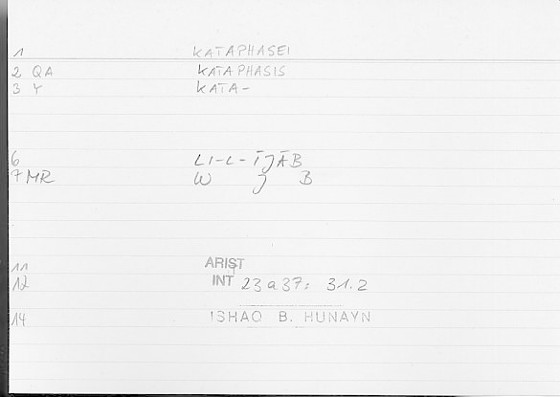 1 KATAPHASEI
2 QA KATAPHASIS
3 Y KATA-
6 LI-L-ĪJĀB
7 MR W J B
11 ARIST
12 INT 23a37: 31.2
14 ISHAQ B. HUNAYN